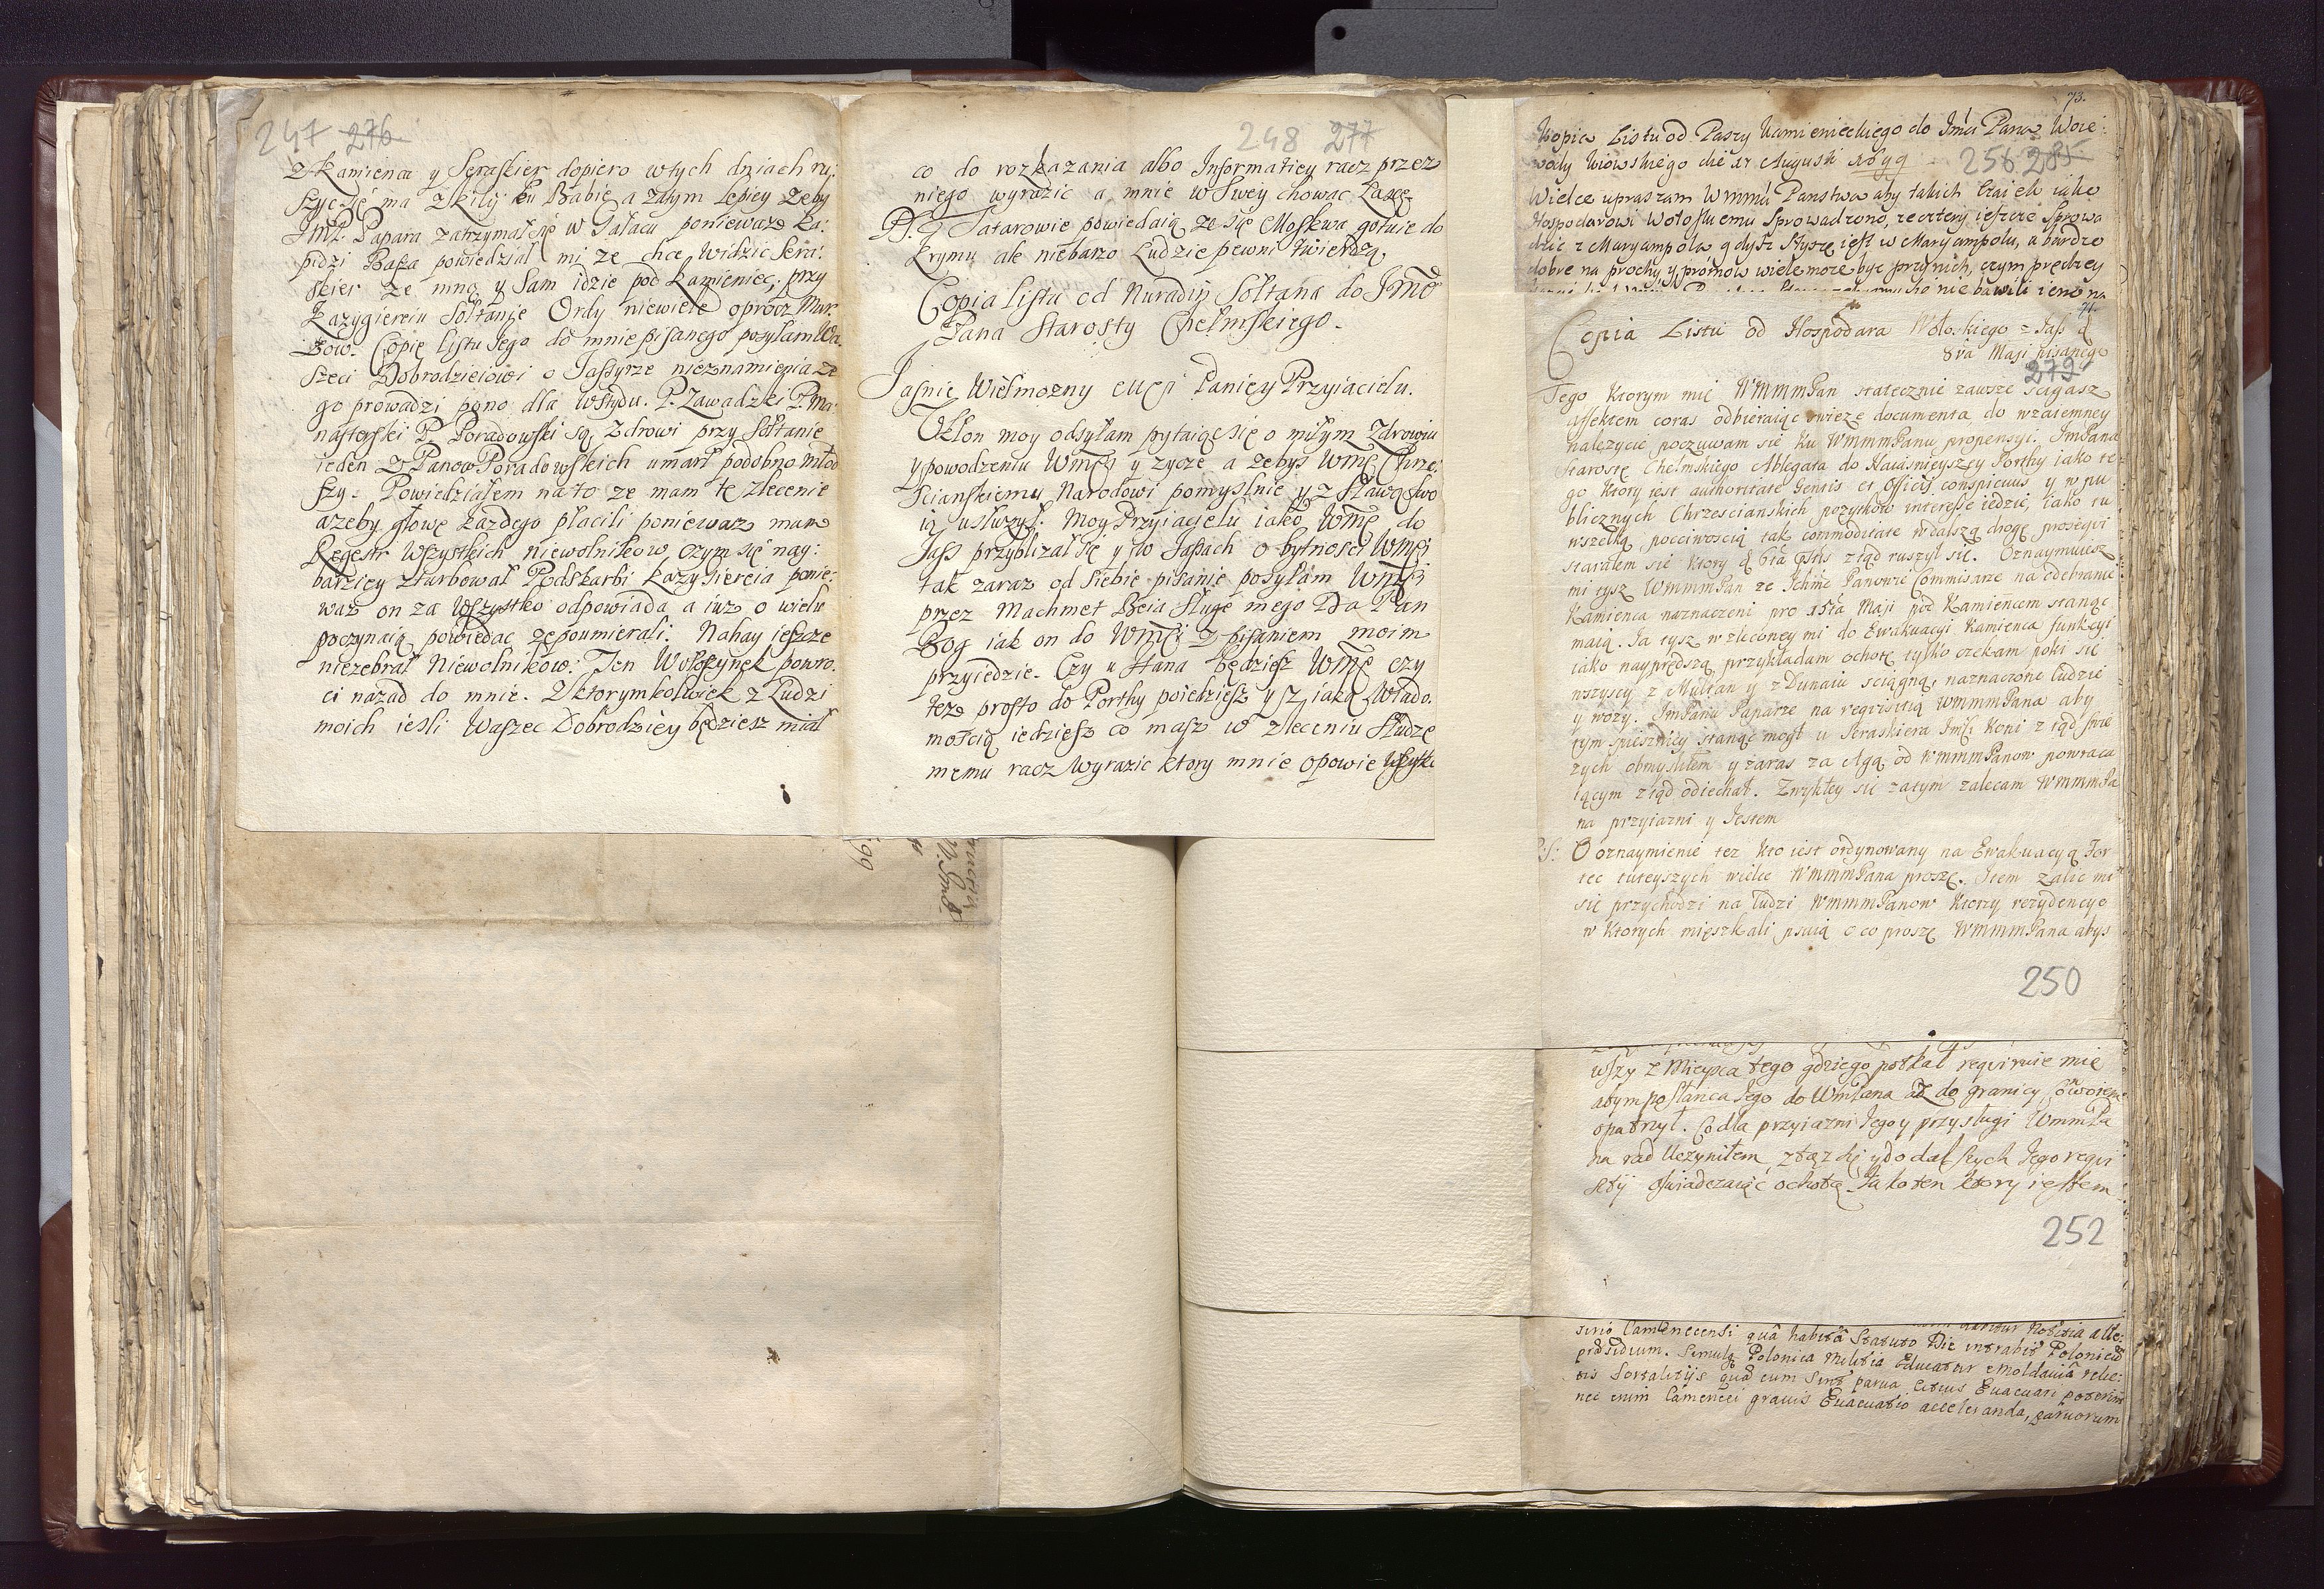 247 276
z Kamienca y Seraskier dopiero w tych dniach ru:
szyc się ma z Kilij ku Babie a zatym lepiey zeby
JmP. Papara zatrzymał się w Gałacu poniewasz Ka:
pidzi Basza powiedział mi ze chce widziec Sera:
skier ze mną y sam idzie pod Kamieniec, przy
Kazygiereiu Sołtanie Ordy niewiele oprocz Mur:
zow. Copię listu Jego do mnie pisanego posyłam Wa
szeci Dobrodzieiowi o Jassyrze nieznamienia ze
go prowadzi pono dla wstydu. P. Zawadzki P. Ma:
P. Poradowski są zdrowi przy Sołtanie
ieden z Panow Poradowskich umarł podobno młod
szy. Powiedziałem na to ze mam te zlecenie
azeby głowę kazdego płacili poniewasz mam
Regestr wszystkich niewolnikow, czym się nay:
bardziey zturbował Podskarbi Kazygiereia ponie:
waz on za wszystko odpowiada a iuz o wielu
poczynaią powiedac ze poumierali. Nahay ieszcze
niezebrał Niewolnikow. Ten Wołoszynek powro:
ci nazad do mnie. Z ktorymkolwiek z Ludzi
moich iesli Waszec Dobrodziey będziesz miał
248 277
co do rozkazania albo Informaticy racz przez
niego wyrazic a mnie w Swey chowac Łasce.
P.S. Tatarowie powiedaią ze się Moskwa gotuie do
Krymu ale niebarzo Ludzie pewni twierdzą
Copia listu od Nuradin Sołtana do Jmo
Pana Starosty Chełmskiego.
Jasnie Wielmozny Mci Panie y Przyiacielu.
Ukłon moy odsyłam pytaiąc się o miłym zdrowiu
y powodzeniu Wmci y zycze a zebys Wmc Chrze:
scianskiemu Narodowi pomyslnie y z Sławą swo
ią usłuzył. Moy Przyiacielu iako Wmc do
Jass przyblizał się y do Jassach o bytnosci Wmci
tak zaraz od siebie pisanie posyłam Wmci
przez Machmet Beia sługę mego Da Pan
Bog iak on do Wmci z pisaniem moim
przyiedzie. Czy u Hana będziesz Wmc czy
tez prosto do Porthy poiedziesz y z iaką wiado:
moscią iedziesz co masz w zleceniu słudze
memu racz wyrazic ktory mnie opowie wszytk
73.
Kopia Listu od Paszy Kamienieckiego do Jmci Pana Woie:
wody Kiowskiego die 17 Augusti 1699
256 285
Wielce upraszam Wmmci Panstwa aby takich czaiek iako
Hospodarowi Wołoskiemu sprowadzono, ze cztery ieszcze sprowa
dzic z Maryampola gdysz słyszę iest w Maryampolu, a bardzo
dobre na prochy, y promow wiele moze byc przy nich, czym prędzey
Copia Listu od Hospodara Wołoskiego z Jass d
8va Maji pisanego
279
Tego ktorym mię WMMMPan statecznie zawsze scigasz
affektem coras odbieraiąc swieze documenta, do wzaiemney
nalezycie poczuwam się ku WMMMPanu propensyi. JmPana
Starostę Chełmskiego Ablegata do Naiasnieyszey Porthy iako te:
go ktory iest authoritate Gentis et Officij conspicuus y w pu
blicznych Chrzescianskich pozytkow interesse iedzie, iako tu
wszelką poczciwoscią tak commoditate w dalszą drogę proseqvi
starałem się ktory d 6ta pstis ztąd ruszył się. Oznaymuiesz
mi tysz WMMMPan ze Ichmc Panowie Commisarze na odebranie
Kamienca naznaczeni pro 15ta Maji pod Kamiencem stanąc
maią. Ja tysz w zleconey mi do Ewakuacyi Kamienca funkcyi
iako nayprędszą przykładam ochotę tylko czekam poki się
wszyscy z Multan y z Dunaiu sciągną, naznaczone ludzie
y wozy. JmPanu Paparze na reqvisitią WMMMPana aby
tym spieszniey stanąc mogł u Seraskiera Jmci Koni ztąd swie
zych obmysliłem y zaras za Agą od WMMMPanow powraca
iącym ztąd odiechał. Zwykłey się zatym zalecam WMMMPa
na przyiazni y Jestem
P:S: O oznaymienie tez kto iest ordynowany na Ewakuacyą For
tec tuteyszych wielce WMMMPana proszę. Item zalic mi
się przychodzi na ludzi WMMMPanow ktorzy rezydencye
w ktorych mięszkali psuią o co proszę WMMMPana abys
250
wszy z Mieysca tego gdziego potkał reqviruie mię
abym posłanca Jego do WmPana az do granicy
opatrzył. Co dla przyiazni Jego y przysługi WmmPa
na rad uczyniłem, ztąz się y do dalszych Jego reqvi
sitij oswiadczaiąc ochotą Jako ten ktory iestem
252
Camenecensi quâ habitâ Statuto Die intrabit Polonicū
pidsidium. Simulq Polonica Militia Educatur e Moldaviâ relic:
tis Fortalitijs quae cum Sint parva citius Evacuari poterint
nec enim Camencei gravis Evacuatio acceleranda, parvorum